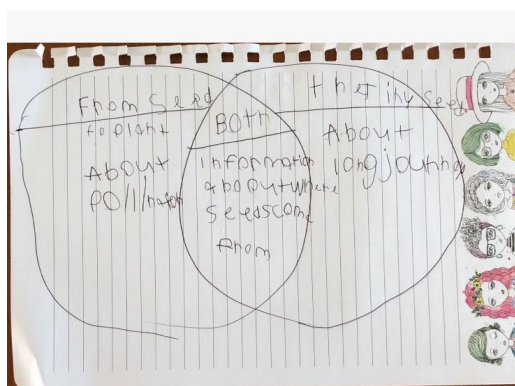 From seed
to plant
About
pollination
Both
information
aboout where
seedscome
from
the tiny seed
About
long journy